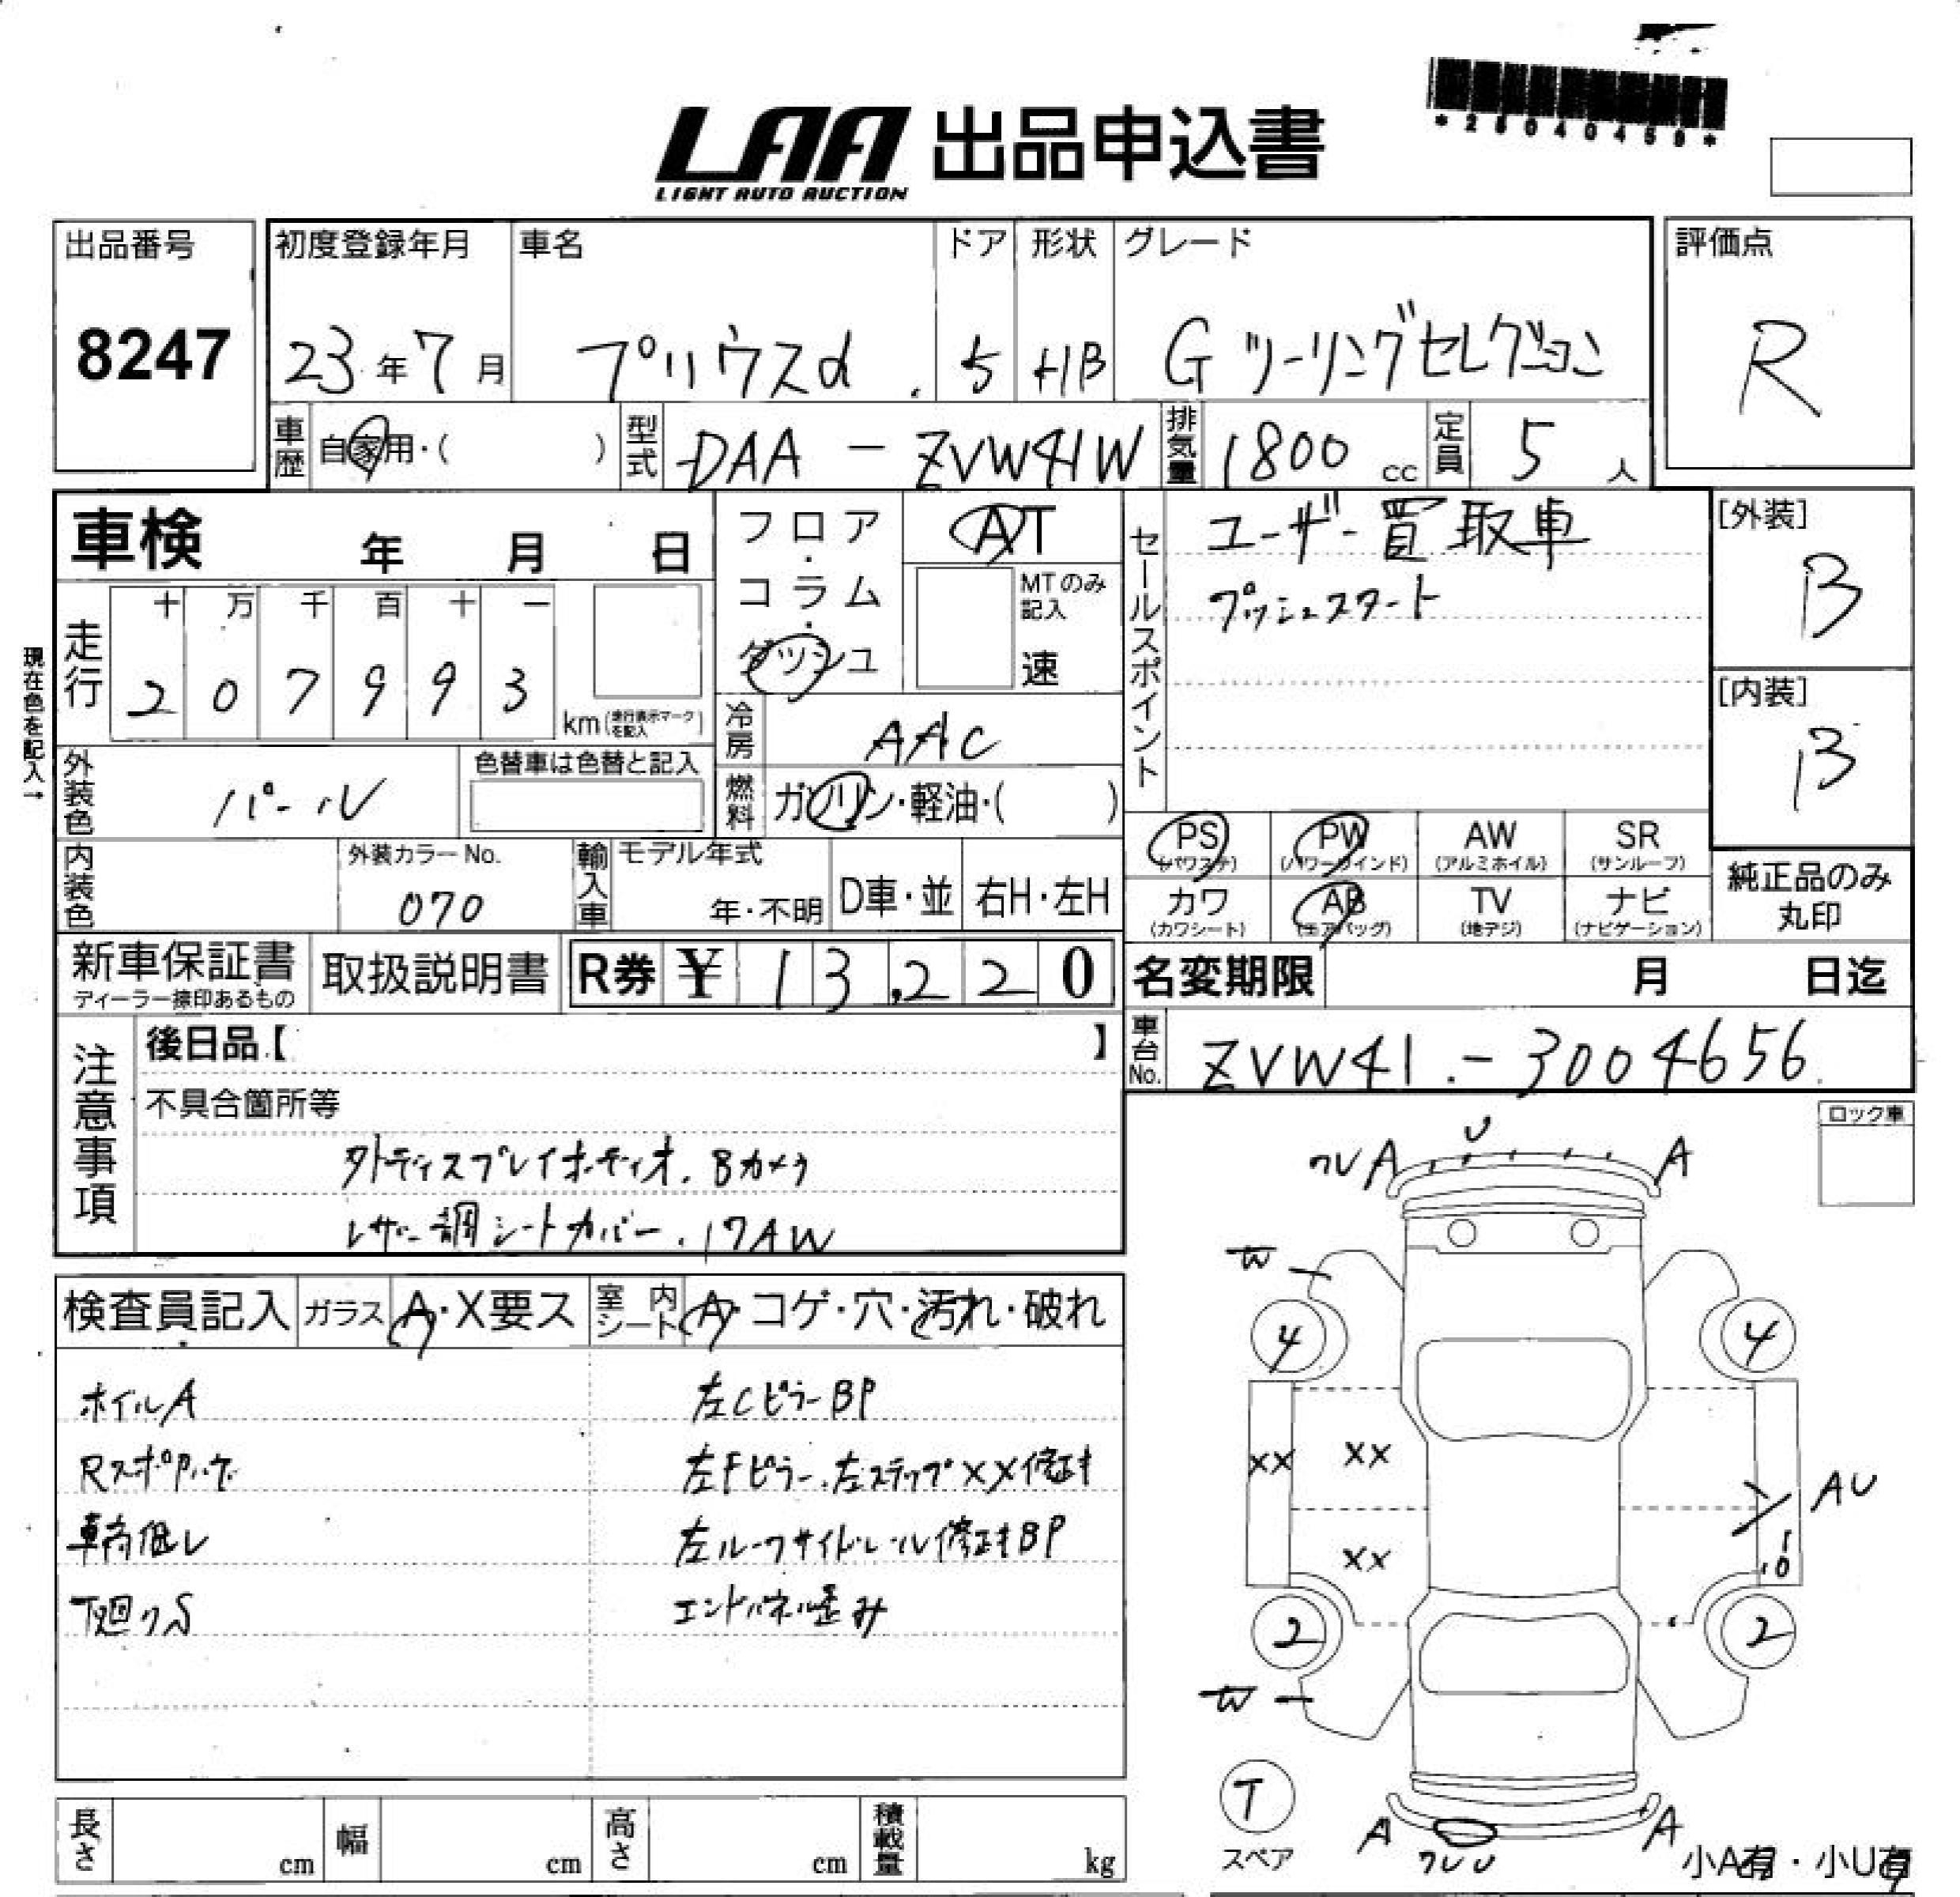 *25040459*
LAA 出品申込書
LIGHT AUTO AUCTION
出品番号 初度登録年月 車名 ドア 形状 グレード 評価点
8247 23年7月 プリウスα 5 HB G ツーリングセレクション R
車歴 自家用・( ) 型式 DAA - ZVW41W 排気量 1800 cc 定員 5 人
車検 年 月 日
フロア・コラム・ダッシュ
AT
MTのみ記入
速
セールスポイント
ユーザー買取車
プッシュスタート
[外装]
B
[内装]
B
現在色を記入→
走行 十 万 千 百 十 一
2 0 7 9 9 3 km (走行表示マークを記入)
冷房 AAC
外装色 パール 色替車は色替と記入
燃料 ガソリン・軽油・( )
内装色 外装カラーNo. 070
輸入車 モデル年式 年・不明 D車・並 右H・左H
PS (パワステ) PW (パワーウインド) AW (アルミホイル) SR (サンルーフ)
カワ (カワシート) AB (エアバッグ) TV (地デジ) ナビ (ナビゲーション)
純正品のみ丸印
新車保証書 ディーラー捺印あるもの 取扱説明書 R券 ¥ 13,220
名変期限 月 日迄
注意事項
後日品【 】
不具合箇所等
外ディスプレイオーディオ.Bカメラ
レザー調シートカバー.17AW
車台No. ZVW41-3004656
ロック車
検査員記入 ガラス A・X要ス 室内シート A・コゲ・穴・汚れ・破れ
ホイルA 左CピラーBP
左Fピラー.左ステップXX修正キ
車高低し 左ルーフサイドレール修正キBP
下廻りS エンドパネル歪み
U
ワレA A
W
4 4
XX XX
AU
XX
10
2 2
W
T
スペア
A A
ワレU
小A有・小U有
長さ cm 幅 cm 高さ cm 積載量 kg